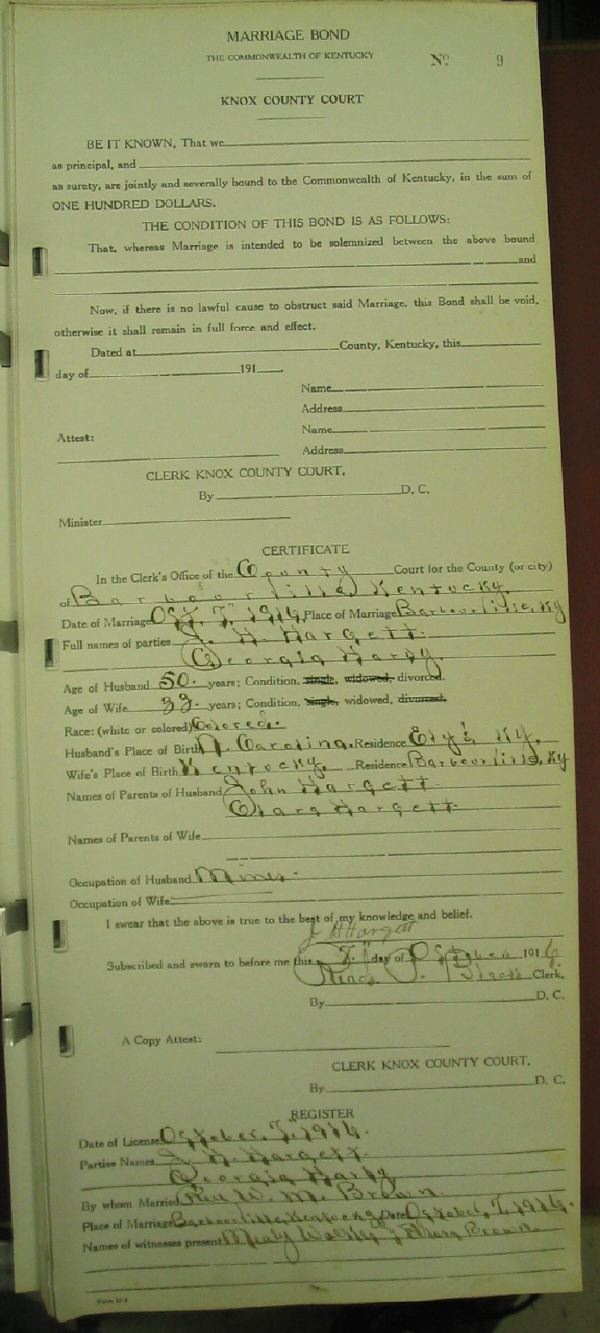 MARRIAGE BOND
THE COMMONWEALTH OF KENTUCKY
No 9
KNOX COUNTY COURT
BE IT KNOWN, That we
as principal, and
as surety, are jointly and severally bound to the Commonwealth of Kentucky, in the sum of
ONE HUNDRED DOLLARS.
THE CONDITION OF THIS BOND IS AS FOLLOWS:
That, whereas Marriage is intended to be solemnized between the above bound
and
Now, if there is no lawful cause to obstruct said Marriage, this Bond shall be void,
otherwise it shall remain in full force and effect.
Dated at County, Kentucky, this
day of 191
Name
Address
Attest: Name
Address
CLERK KNOX COUNTY COURT.
By D. C.
Minister
CERTIFICATE
In the Clerk's Office of the County Court for the County (or city)
of Barbourville Kentucky.
Date of Marriage Oct. 7" 1916 Place of Marriage Barbourville, Ky
Full names of parties J. H. Hargett.
Georgia Hardy.
Age of Husband 50. years; Condition, single, widowed, divorced.
Age of Wife 33. years; Condition, single, widowed, divorced.
Race: (white or colored) Colored.
Husband's Place of Birth N. Carolina. Residence Ely's Ky.
Wife's Place of Birth Kentucky. Residence Barbourville, Ky
Names of Parents of Husband John Hargett.
Clara Hargett.
Names of Parents of Wife
Occupation of Husband Miner.
Occupation of Wife
I swear that the above is true to the best of my knowledge and belief.
J H Hargett
Subscribed and sworn to before me this 7" day of October 1916
Clerk.
By D. C.
A Copy Attest:
CLERK KNOX COUNTY COURT.
By D. C.
REGISTER
Date of License October. 7" 1916.
Parties Names J. H. Hargett.
Georgia Hardy
By whom Married W. M. Brown.
Place of Marriage Barbourville Kentucky Date October, 7, 1916.
Names of witnesses present Brown